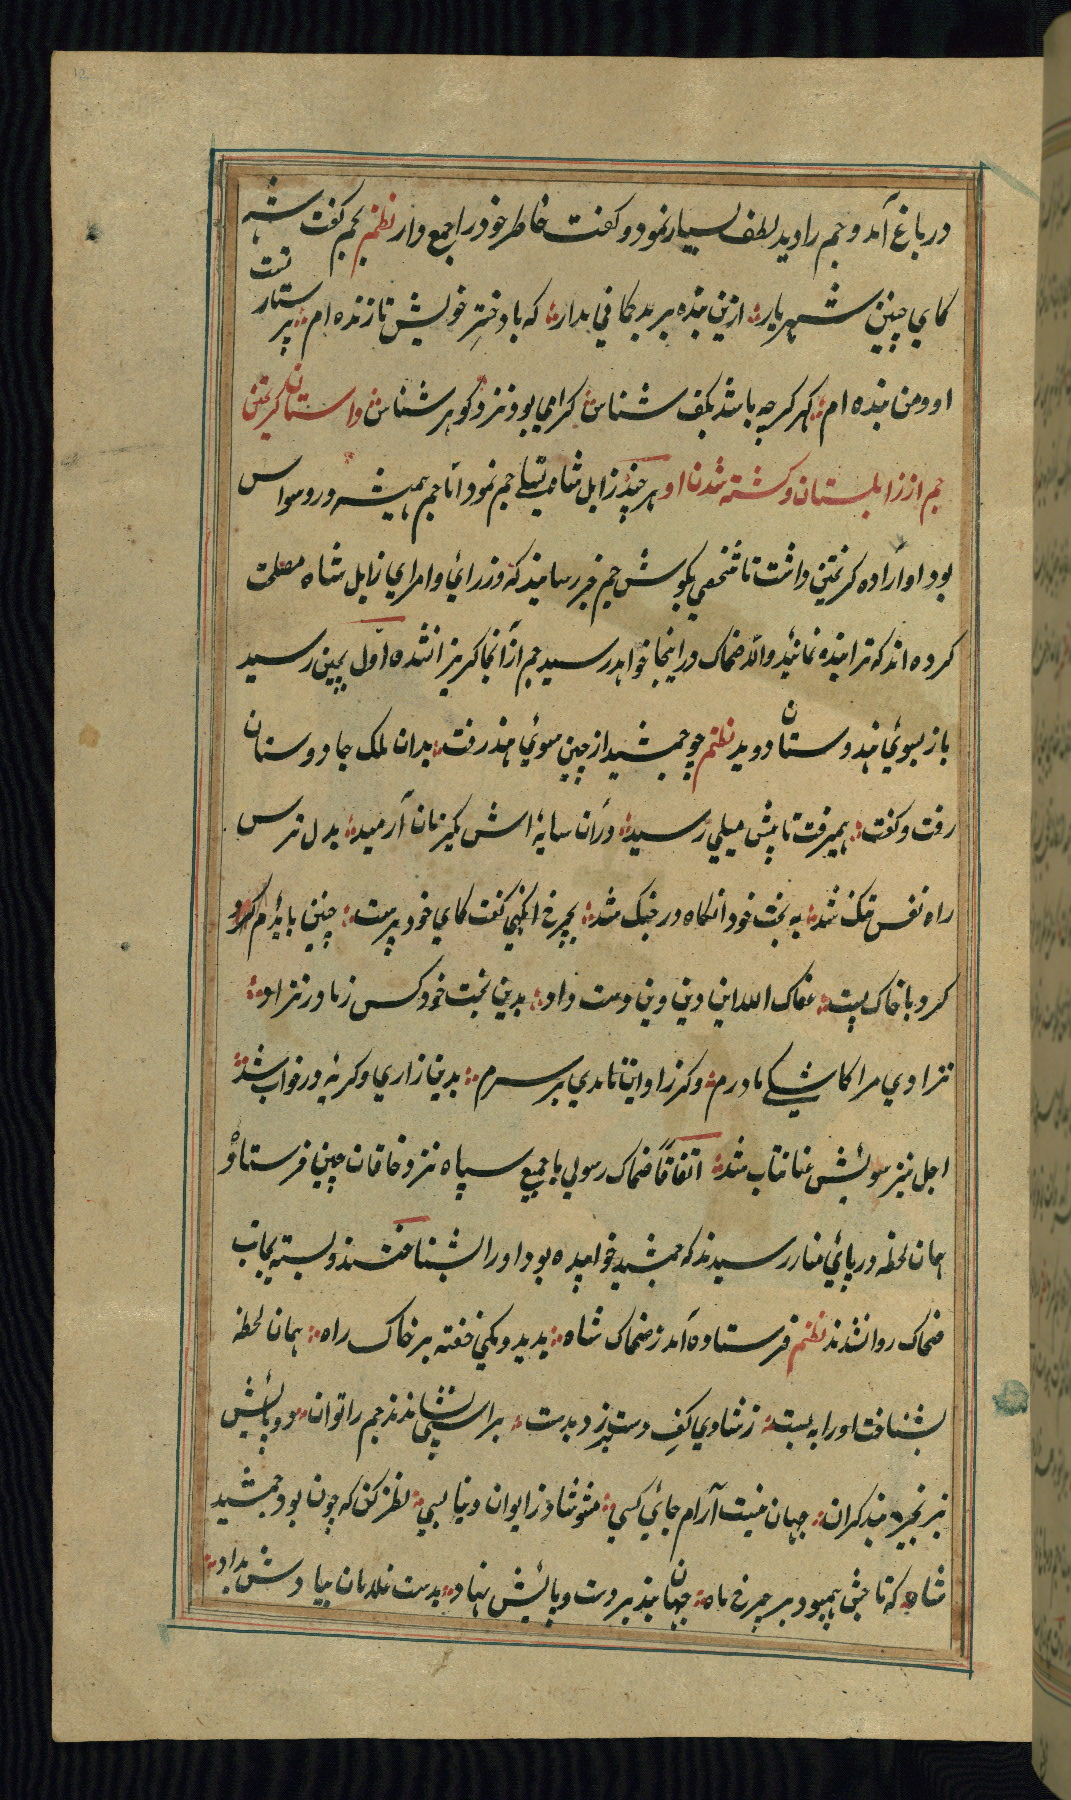 در باغ آمد و جم را دید لطف بسیار نمود و کفت خاطر خود را جمع دار نظم بجم کفت شه
کای چنین شهریار ازین بنده بر بد کمانی مدار که با دختر خویش تا زنده ام پرستار تست
او و من بنده ام کهر کرچه باشد بکف شناس کرامی بود نزد کوهر شناس داستان کریختن
جم از زابلستان و کشته شدن او هر چند زابل شاه تسلی جم نمود اما جم همیشه در وسواس
بود و اراده کریختن داشت تا شخصی بکوش جم خبر رسانید که وزرای و امرای زابل شاه مصلحت
کرده اند که ترا بنده نمایند والا ضحاک در اینجا خواهد رسید جم از آنجا کریزان شده اول بچین رسید
باز بسوی هندوستان دوید نظم چو جمشید از چین سوی هند رفت بدان ملک جادوستان
رفت و کفت همیرفت تا پیش میلی رسید در آن سایه اش یکزمان آرمید بدل ترس
راه نفس تنک شد به بخت خود آنکاه در جنک شد بچرخ انکهی کفت کای خود پرست چنین پایه ام کرد
کرد با خاک پست عفاک الله این دین وین دست داد بدین بخت خود کس ز مادر نزاد
نزادی مرا کاشکی مادرم وکر زاد این نامدی بر سرم بدین زاری و کریه در خواب شد
اجل نیز سویش عنانتاب شد اتفاقا ضحاک رسولی با جمیع سپاه نزد خاقان چین فرستاده
همان لحظه در پای منار رسیدند که جمشید خوابیده بود او را بشناختند و بسته بجانب
ضحاک روانشدند نظم فرستاده آمد ز ضحاک شاه بدید و یکی خفته بر خاک راه همان لحظه
بشناخت او را به بست ز شادی کف دست بر زد بدست براسپی نشاندند جم را توان دو پایش
بزنجیر بند کران جهان نیست آرام جای کسی مشو شاد ز ایوان دنیا بسی نظر کن که چون بود جمشید
شاه که تاجش همیبود بر چرخ ماه جهان بند بر دست و پایش نهاد بدست غلامان بیادش بداد